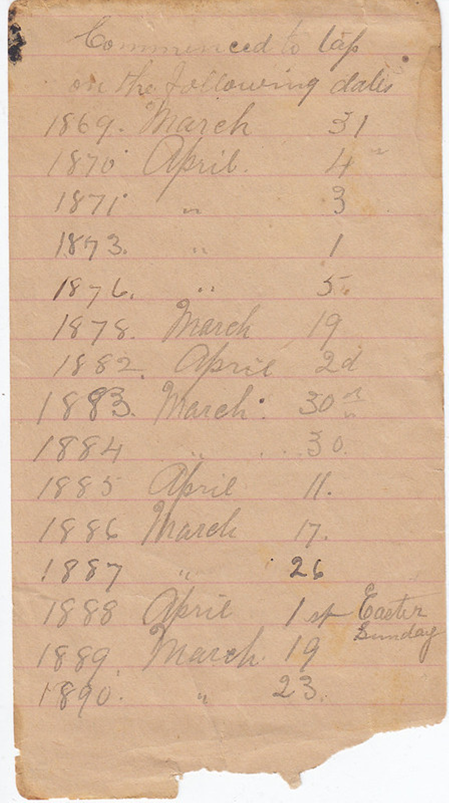 Commenced to tap
on the following dates
1869. March 31
1870 April. 4
1871 " 3
1873. " 1
1876. " 5.
1878. March 19
1882. April 2d
1883. March. 30th
1884 " 30.
1885 April 11.
1886 March 17.
1887 " 26
1888 April 1st Easter
Sunday
1889. March 19
1890. " 23.